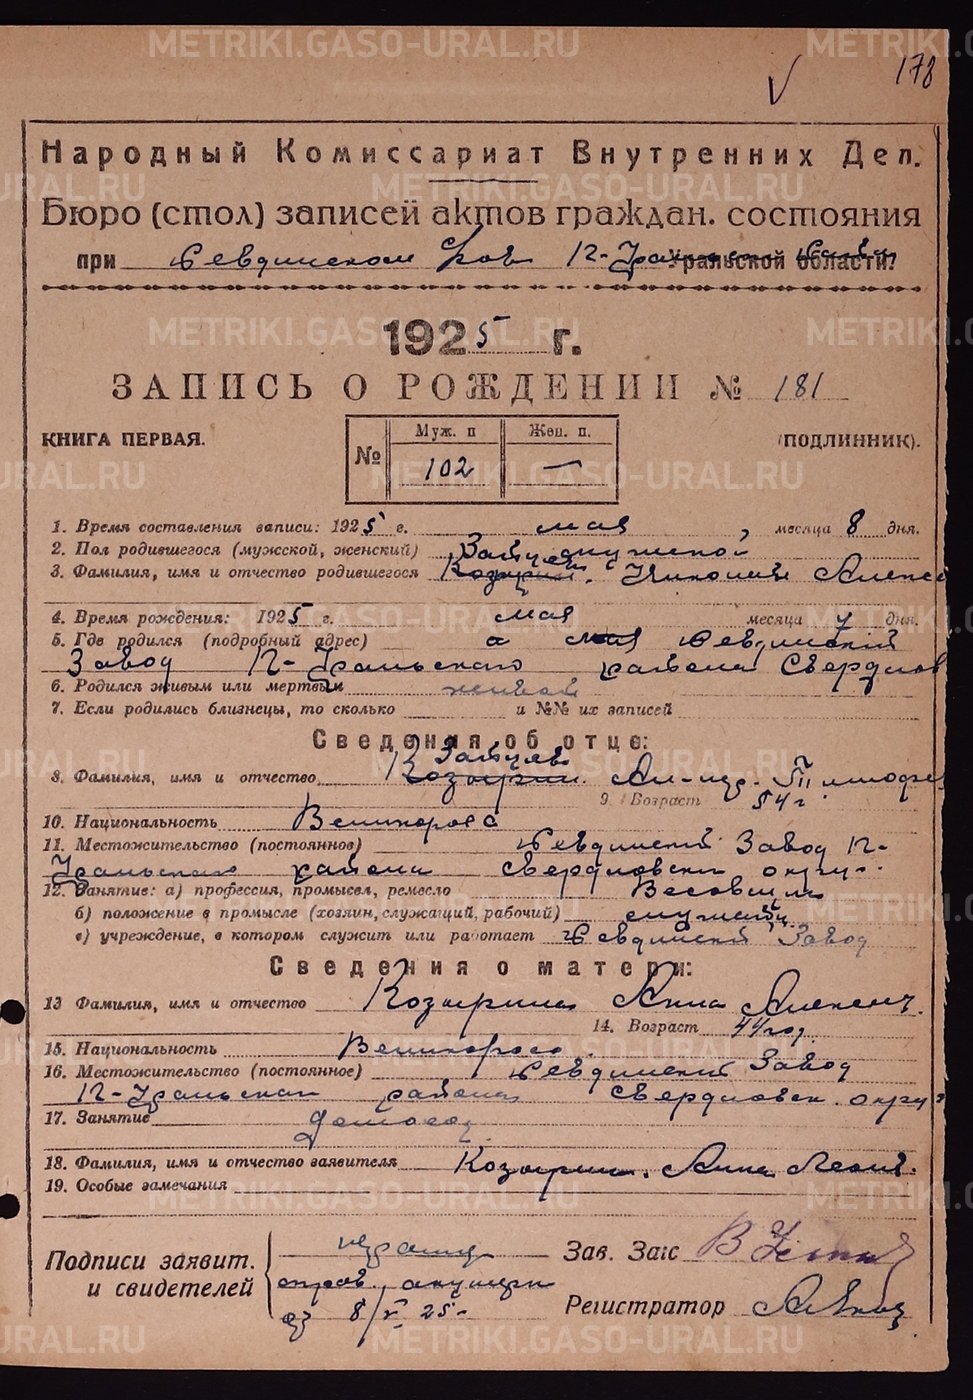 178
Народный Комиссариат Внутренних Дел.
Бюро (стол) записей актов граждан. состояния
при Уральской области.
1925 г.
ЗАПИСЬ О РОЖДЕНИИ № 181
КНИГА ПЕРВАЯ. (ПОДЛИННИК).
№ Муж. п Жен. п.
102 —
1. Время составления записи: 1925 г. мая месяца 8 дня.
2. Пол родившегося (мужской, женский) мужской
3. Фамилия, имя и отчество родившегося Николай Алекс
4. Время рождения: 1925 г. мая месяца 7 дня.
5. Где родился (подробный адрес) Ревдинский
Завод П-Уральского района Свердлов
6. Родился живым или мертвым живой
7. Если родились близнецы, то сколько и №№ их записей
Сведения об отце:
8. Фамилия, имя и отчество Ал-др. Тимофе
9. Возраст 54 г.
10. Национальность Великоросс
11. Местожительство (постоянное) Ревдинский Завод П-
Уральского района Свердловск округ.
12. Занятие: а) профессия, промысел, ремесло Весовщик
б) положение в промысле (хозяин, служащий, рабочий) служащ.
в) учреждение, в котором служит или работает Ревдинский Завод
Сведения о матери:
13 Фамилия, имя и отчество Козырина Анна
14. Возраст 44 год.
15. Национальность Великоросс
16. Местожительство (постоянное) Ревдинский Завод
П-Уральский района Свердловск. округ
17. Занятие Домохоз.
18. Фамилия, имя и отчество заявителя Козырина Анна
19. Особые замечания
Подписи заявит. и свидетелей
справ. акушерк
8/V 25
Зав. Загс
Регистратор
METRIKI.GASO-URAL.RU